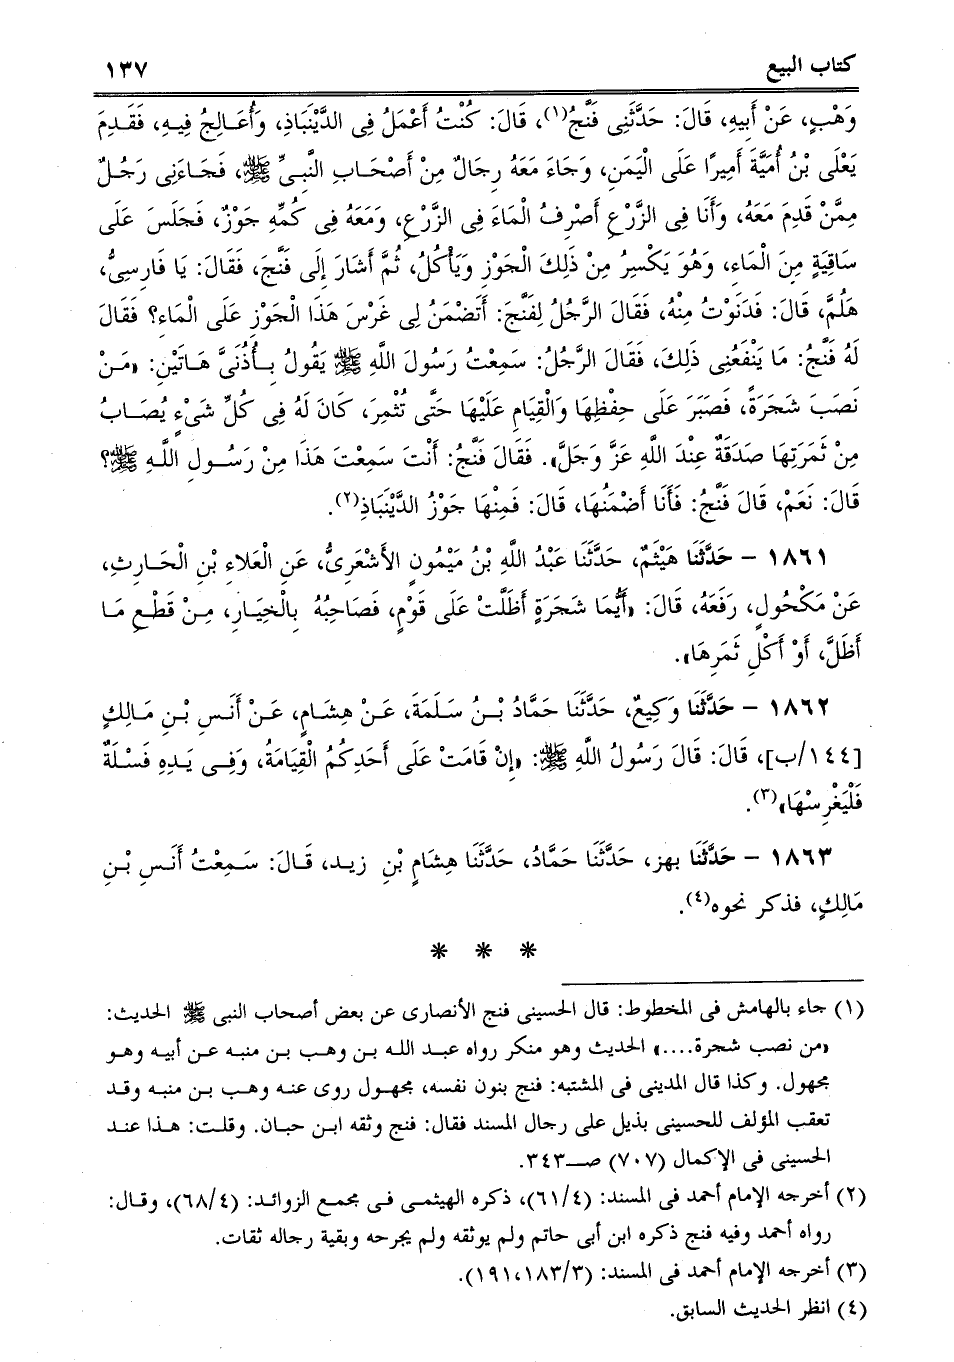 كتاب البيع ١٣٧
وَهْبٍ، عَنْ أَبِيهِ، قَالَ: حَدَّثَنِى فَنَّجُ(١)، قَالَ: كُنْتُ أَعْمَلُ فِى الدَّيْنَبَاذِ، وَأُعَالِجُ فِيهِ، فَقَدِمَ
يَعْلَى بْنُ أُمَيَّةَ أَمِيرًا عَلَى الْيَمَنِ، وَجَاءَ مَعَهُ رِجَالٌ مِنْ أَصْحَابِ النَّبِىِّ ﷺ، فَجَاءَنِى رَجُلٌ
مِمَّنْ قَدِمَ مَعَهُ، وَأَنَا فِى الزَّرْعِ أَصْرِفُ الْمَاءَ فِى الزَّرْعِ، وَمَعَهُ فِى كُمِّهِ جَوْزٌ، فَجَلَسَ عَلَى
سَاقِيَةٍ مِنَ الْمَاءِ، وَهُوَ يَكْسِرُ مِنْ ذَلِكَ الْجَوْزِ وَيَأْكُلُ، ثُمَّ أَشَارَ إِلَى فَنَّجَ، فَقَالَ: يَا فَارِسِىُّ،
هَلُمَّ، قَالَ: فَدَنَوْتُ مِنْهُ، فَقَالَ الرَّجُلُ لِفَنَّجَ: أَتَضْمَنُ لِى غَرْسَ هَذَا الْجَوْزِ عَلَى الْمَاءِ؟ فَقَالَ
لَهُ فَنَّجُ: مَا يَنْفَعُنِى ذَلِكَ، فَقَالَ الرَّجُلُ: سَمِعْتُ رَسُولَ اللَّهِ ﷺ يَقُولُ بِأُذُنَىَّ هَاتَيْنِ: «مَنْ
نَصَبَ شَجَرَةً، فَصَبَرَ عَلَى حِفْظِهَا وَالْقِيَامِ عَلَيْهَا حَتَّى تُثْمِرَ، كَانَ لَهُ فِى كُلِّ شَىْءٍ يُصَابُ
مِنْ ثَمَرَتِهَا صَدَقَةٌ عِنْدَ اللَّهِ عَزَّ وَجَلَّ». فَقَالَ فَنَّجُ: أَنْتَ سَمِعْتَ هَذَا مِنْ رَسُولِ اللَّهِ ﷺ؟
قَالَ: نَعَمْ، قَالَ فَنَّجُ: فَأَنَا أَضْمَنُهَا، قَالَ: فَمِنْهَا جَوْزُ الدَّيْنَبَاذِ(٢).
١٨٦١ - حَدَّثَنَا هَيْثَمٌ، حَدَّثَنَا عَبْدُ اللَّهِ بْنُ مَيْمُونٍ الأَشْعَرِىُّ، عَنِ الْعَلاءِ بْنِ الْحَارِثِ،
عَنْ مَكْحُولٍ، رَفَعَهُ، قَالَ: «أَيُّمَا شَجَرَةٍ أَظَلَّتْ عَلَى قَوْمٍ، فَصَاحِبُهُ بِالْخِيَارِ، مِنْ قَطْعِ مَا
أَظَلَّ، أَوْ أَكْلِ ثَمَرِهَا».
١٨٦٢ - حَدَّثَنَا وَكِيعٌ، حَدَّثَنَا حَمَّادُ بْنُ سَلَمَةَ، عَنْ هِشَامٍ، عَنْ أَنَسِ بْنِ مَالِكٍ
[١٤٤/ب]، قَالَ: قَالَ رَسُولُ اللَّهِ ﷺ: «إِنْ قَامَتْ عَلَى أَحَدِكُمُ الْقِيَامَةُ، وَفِى يَدِهِ فَسْلَةٌ
فَلْيَغْرِسْهَا»(٣).
١٨٦٣ - حَدَّثَنَا بهز، حَدَّثَنَا حَمَّادُ، حَدَّثَنَا هِشَامِ بْنِ زيد، قَالَ: سَمِعْتُ أَنَسِ بْنِ
مَالِكٍ، فذكر نحوه(٤).
* * *
(١) جاء بالهامش فى المخطوط: قال الحسينى فنج الأنصارى عن بعض أصحاب النبى ﷺ الحديث:
«من نصب شجرة....» الحديث وهو منكر رواه عبد الله بن وهب بن منبه عن أبيه وهو
مجهول. وكذا قال المدينى فى المشتبه: فنج بنون نفسه، مجهول روى عنه وهب بن منبه وقد
تعقب المؤلف للحسينى بذيل على رجال المسند فقال: فنج وثقه ابن حبان. وقلت: هذا عند
الحسينى فى الإكمال (٧٠٧) صـ٣٤٣.
(٢) أخرجه الإمام أحمد فى المسند: (٦١/٤)، ذكره الهيثمى فى مجمع الزوائد: (٦٨/٤)، وقال:
رواه أحمد وفيه فنج ذكره ابن أبى حاتم ولم يوثقه ولم يجرحه وبقية رجاله ثقات.
(٣) أخرجه الإمام أحمد فى المسند: (١٩١،١٨٣/٣).
(٤) انظر الحديث السابق.